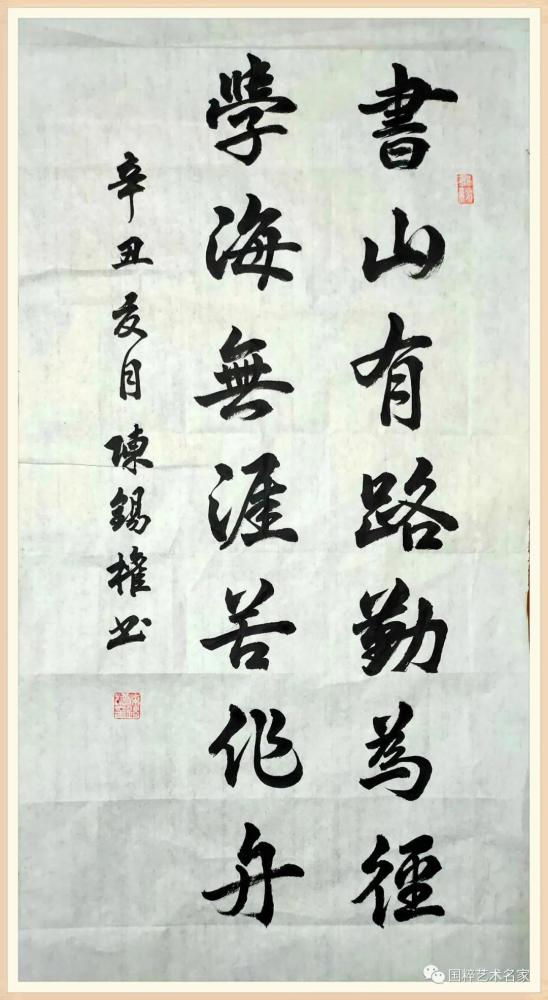 書山有路勤為徑
學海無涯苦作舟
辛丑夏月陳錫權書
国粹艺术名家